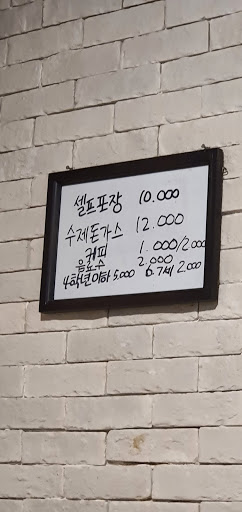 셀프포장 10.000
수제돈가스 12.000
커피 1.000/2000
음료수 2.000
4학년이하 5.000 6.7세 2.000